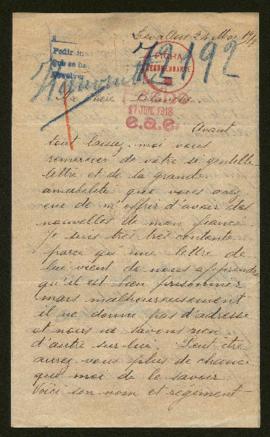 Levallois 24 Mai 191
Pedir
72192
FICHA
17 JUN. 1918
e.a.e.
Avant
tout laissez-moi vous
remercier de votre si gentille
lettre et de la grande
amabilité que vous avez
eue de m'offrir d'avoir des
nouvelles de mon fiancé
Je suis très très contente
parce qu'une lettre de
lui vient de nous apprendre
qu'il est bien prisonnier
mais malheureusement
il ne donne pas d'adresse
et nous ne savons rien
d'autre sur lui. Peut être
aurez vous plus de chance
que moi de le savoir
Voici son nom et régiment